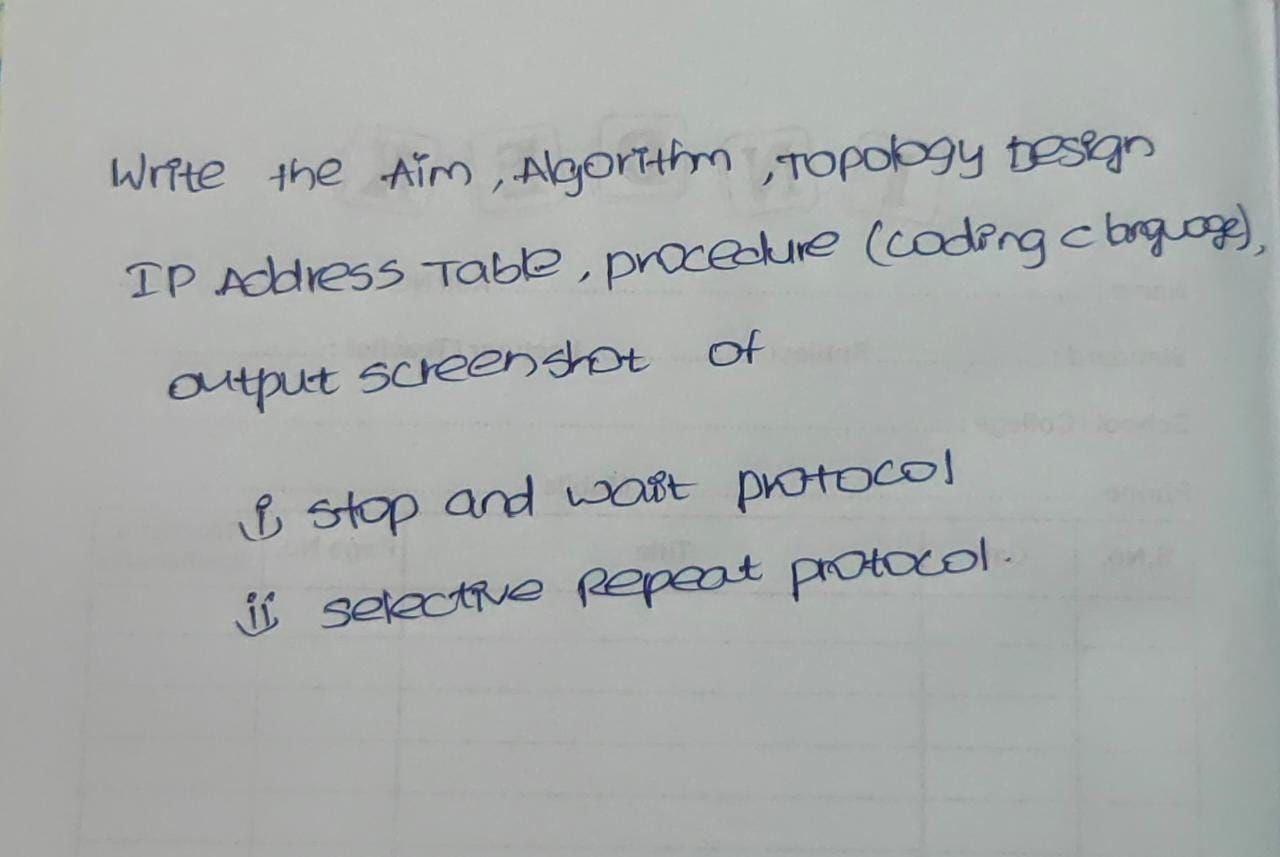 Write the Aim, Algorithm, Topology Design
IP Address Table, procedure (coding c language),
output screenshot of
i) stop and wait protocol
ii) selective Repeat protocol.